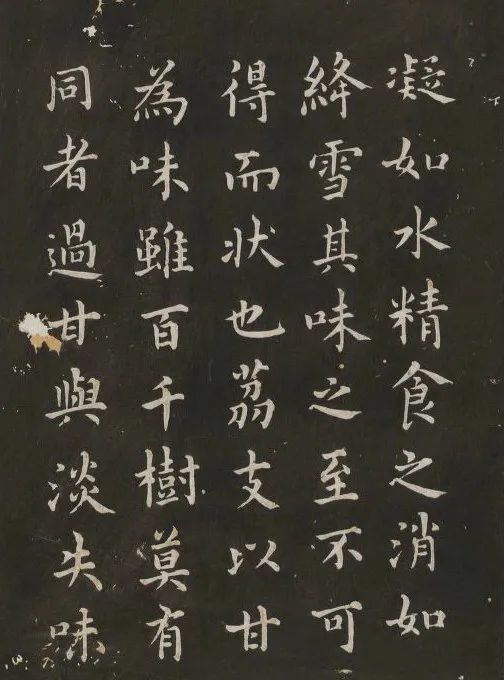 凝如水精食之消如
絳雪其味之至不可
得而状也荔支以甘
為味雖百千樹莫有
同者過甘與淡失味